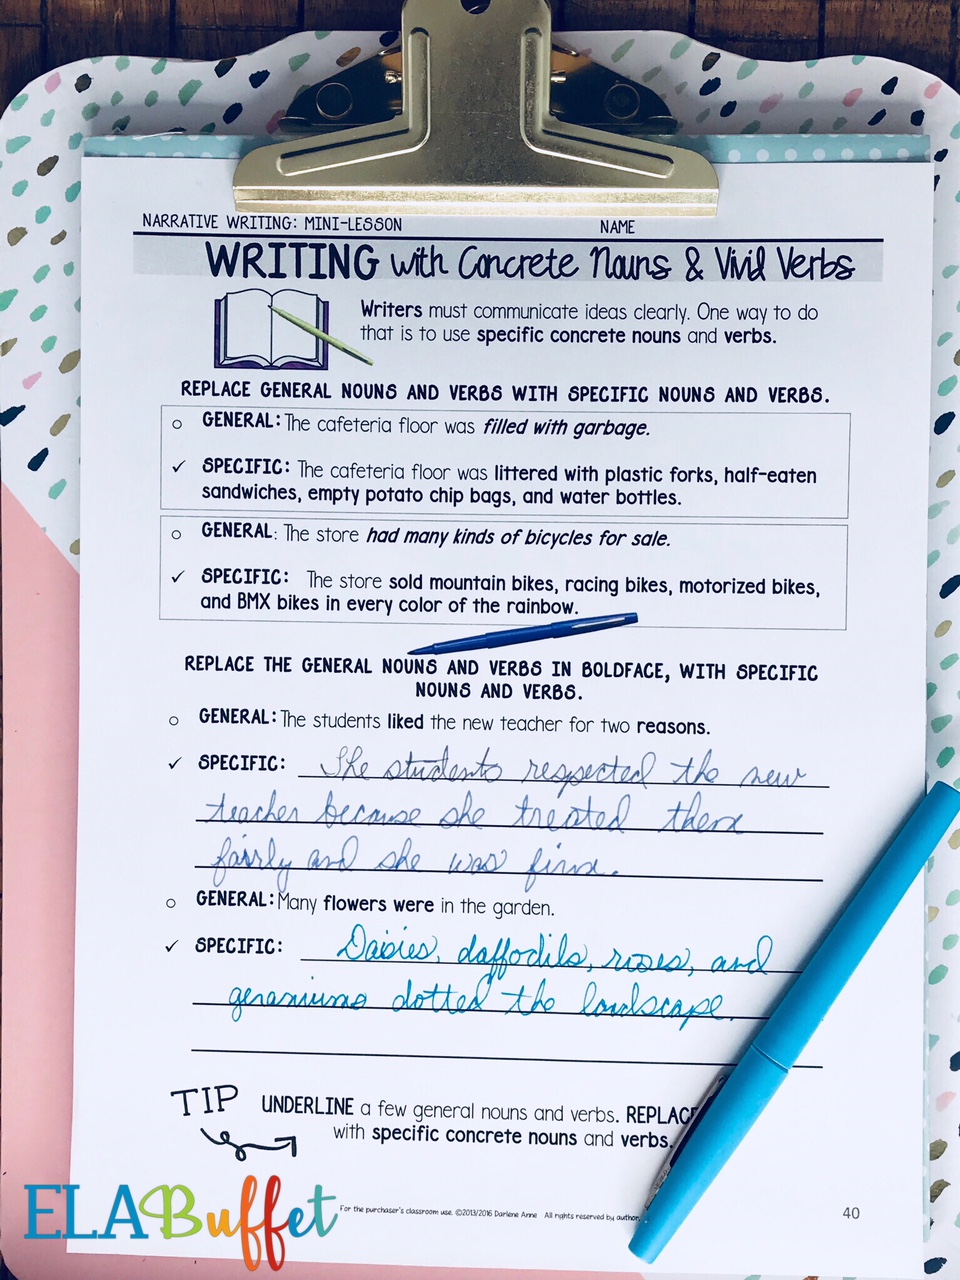 NARRATIVE WRITING: MINI-LESSON NAME
WRITING with Concrete Nouns & Vivid Verbs
Writers must communicate ideas clearly. One way to do
that is to use specific concrete nouns and verbs.
REPLACE GENERAL NOUNS AND VERBS WITH SPECIFIC NOUNS AND VERBS.
GENERAL: The cafeteria floor was filled with garbage.
✓ SPECIFIC: The cafeteria floor was littered with plastic forks, half-eaten
sandwiches, empty potato chip bags, and water bottles.
GENERAL: The store had many kinds of bicycles for sale.
✓ SPECIFIC: The store sold mountain bikes, racing bikes, motorized bikes,
and BMX bikes in every color of the rainbow.
REPLACE THE GENERAL NOUNS AND VERBS IN BOLDFACE, WITH SPECIFIC
NOUNS AND VERBS.
GENERAL: The students liked the new teacher for two reasons.
✓ SPECIFIC: The students respected the new
teacher because she treated them
fairly and she was firm.
GENERAL: Many flowers were in the garden.
✓ SPECIFIC: Daisies, daffodils, roses, and
geraniums dotted the landscape.
TIP UNDERLINE a few general nouns and verbs. REPLACE
with specific concrete nouns and verbs.
ELABuffet
For the purchaser's classroom use. ©2013/2016 Darlene Anne All rights reserved by author.
40